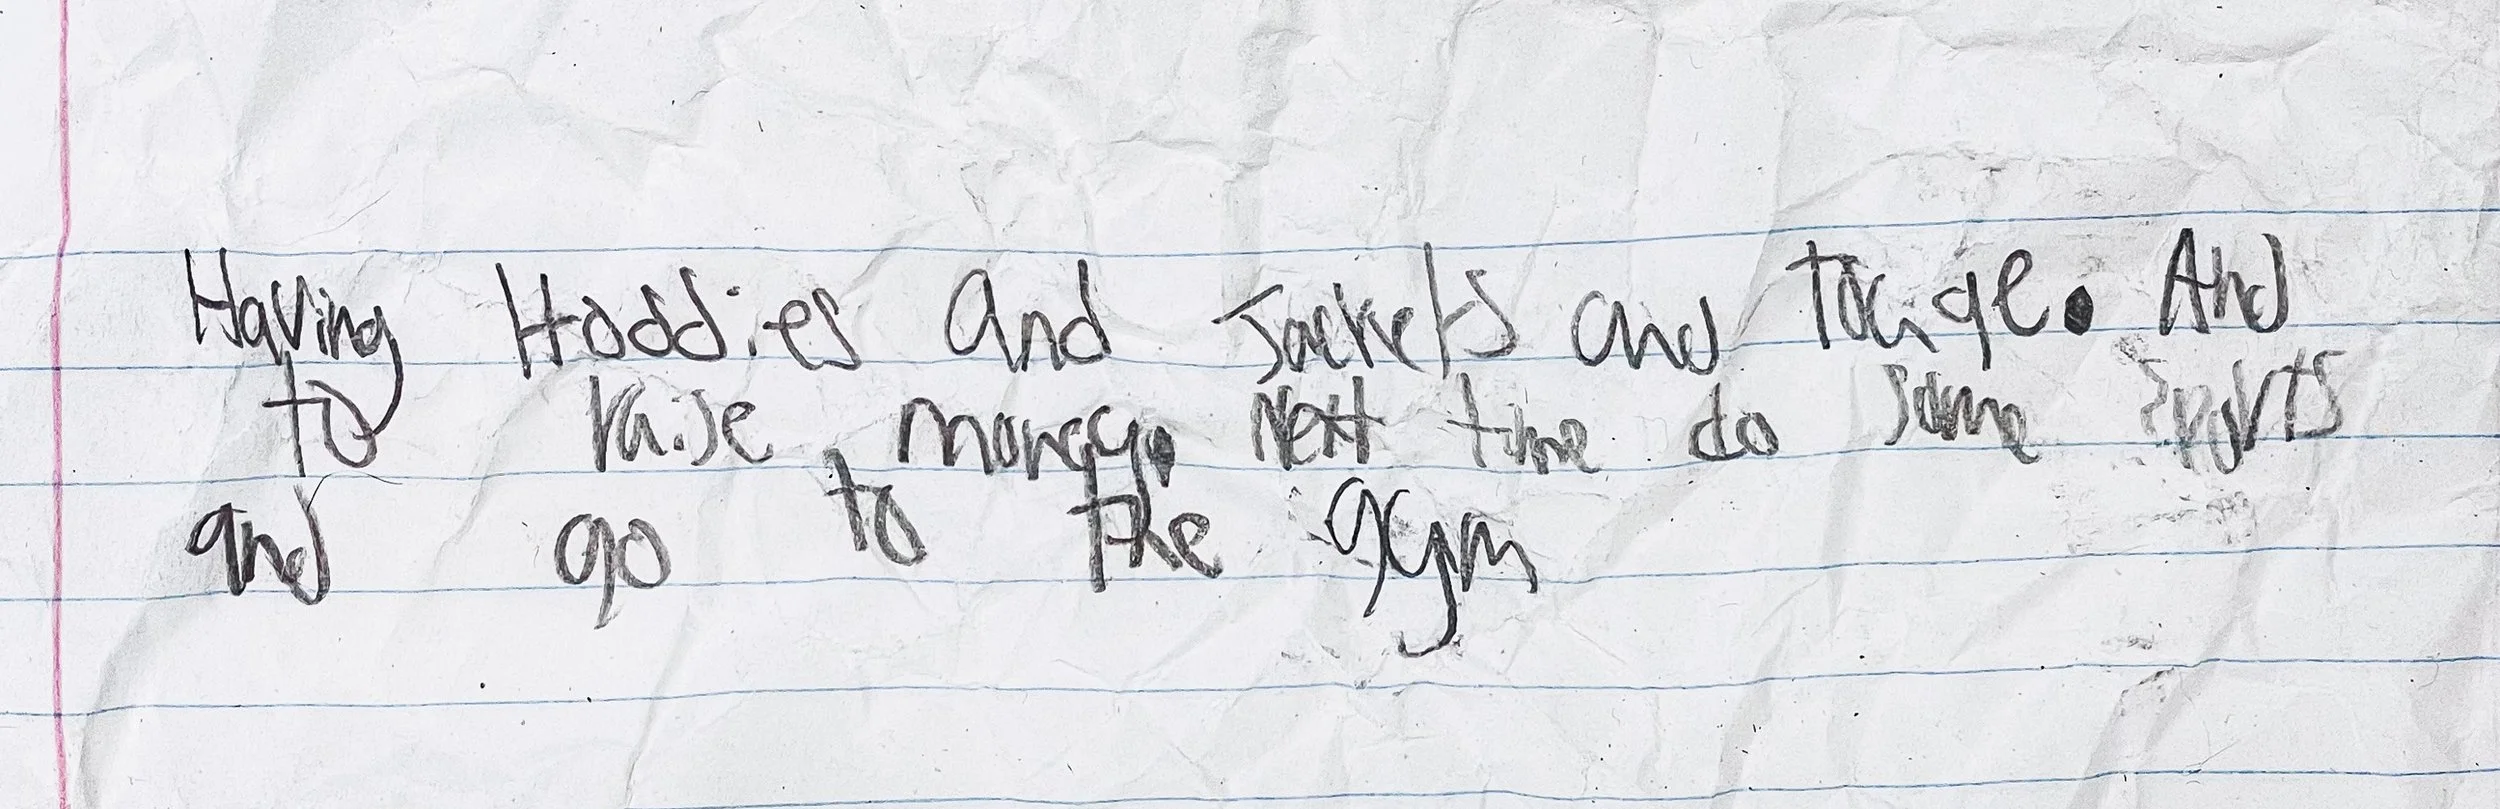 Having Hoddies and Jackets and And
to raise money. Next time do some sports
and go to the gym